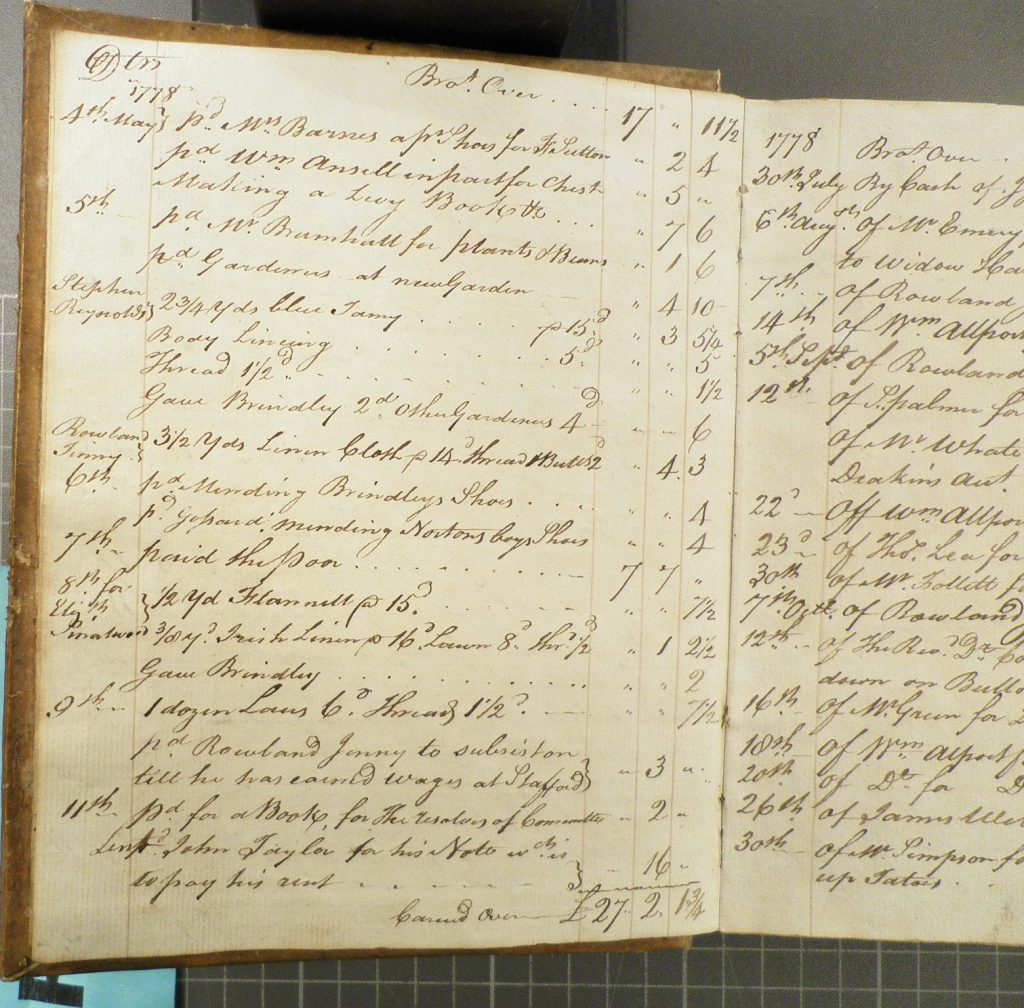 Drs
1778
Brot. Over .... 17 " 11 1/2
4th May } pd. Mrs Barnes a pr Shoes for F. Sutton " 2 4
pd Wm Ansell in part for Chest
Making a Levy Book &c ... " 5 "
5th pd Mr. Brumhall for plants & Beans " 7 6
pd Gardeners at new Garden " 1 6
Stephen
Reynolds } 2 3/4 Yds blue Tamy ..... p 15d " 4 10
Body Lineing ........ 5d " 3 5 1/4
Thread 1 1/2d " " 5
Gave Brindley 2d. Other Gardeners 4d " " 1 1/2
" " 6
Rowland
Jinny } 3 1/2 Yds Linen Cloth p 14d thread & Butts 2 " 4 3
6th pd Mending Brindleys Shoes ....
pd. mending Nortons boys Shoes " " 4
" " 4
7th paid the poor ......... 7 7 "
8th for
Elizth } 1/2 Yd Flannell p 15d. " " 7 1/2
Smalwood 3/8 yd. Irish Linen p 16d Lawn 8d Thrd. 1/2 " 1 2 1/2
Gave Brindley ......... " " 2
9th 1 dozen Laces 6d. Thread 1 1/2d. " " 7 1/2
pd Rowland Jenny to subsist on
till he has earned wages at Stafford } " 3 "
11th pd for a Book for The resolves of Committe " 2 "
Lent John Taylor for his Note wch is
to pay his rent ...... } " 16 "
Carried Over £27 2 1 3/4
1778 Brot. Over .
30th July By Cash of
6th Augt. of Mr. Emery
to Widow
7th of Rowland
14th of Wm Allport
5th Sept. of Rowland
12th. of S. palmer for
of Mr Whate
Deakins
22d off Wm Allpor
23d of Thos. Lea for
30th of Mr Follett
7th Octr. of Rowland
12th of The Revd. Dr.
down on
16th of Mr Green for
18th of Wm Alport
20th of Do for
26th of James
30th of Mr Simpson fo
up Tatoes.